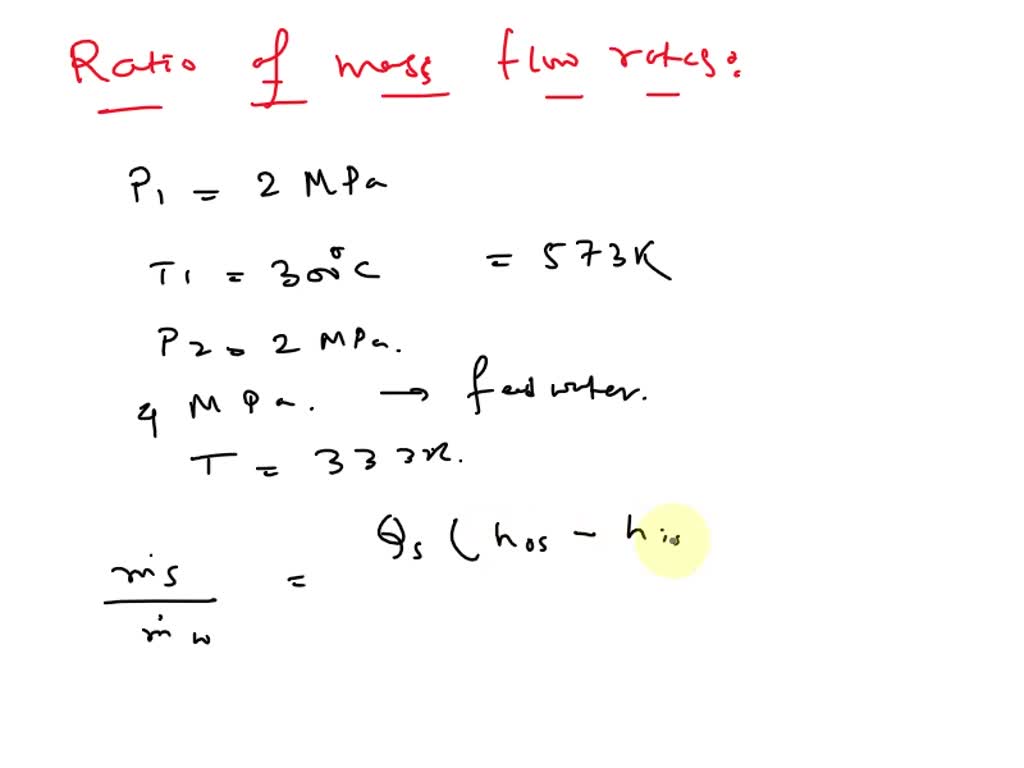 Ratio of mass flow rates:
P1 = 2 MPa
T1 = 300°C = 573K
P2 = 2 MPa.
4 MPa. → feed water.
T = 333K.
Qs (hos - his
ṁs = 
ṁw